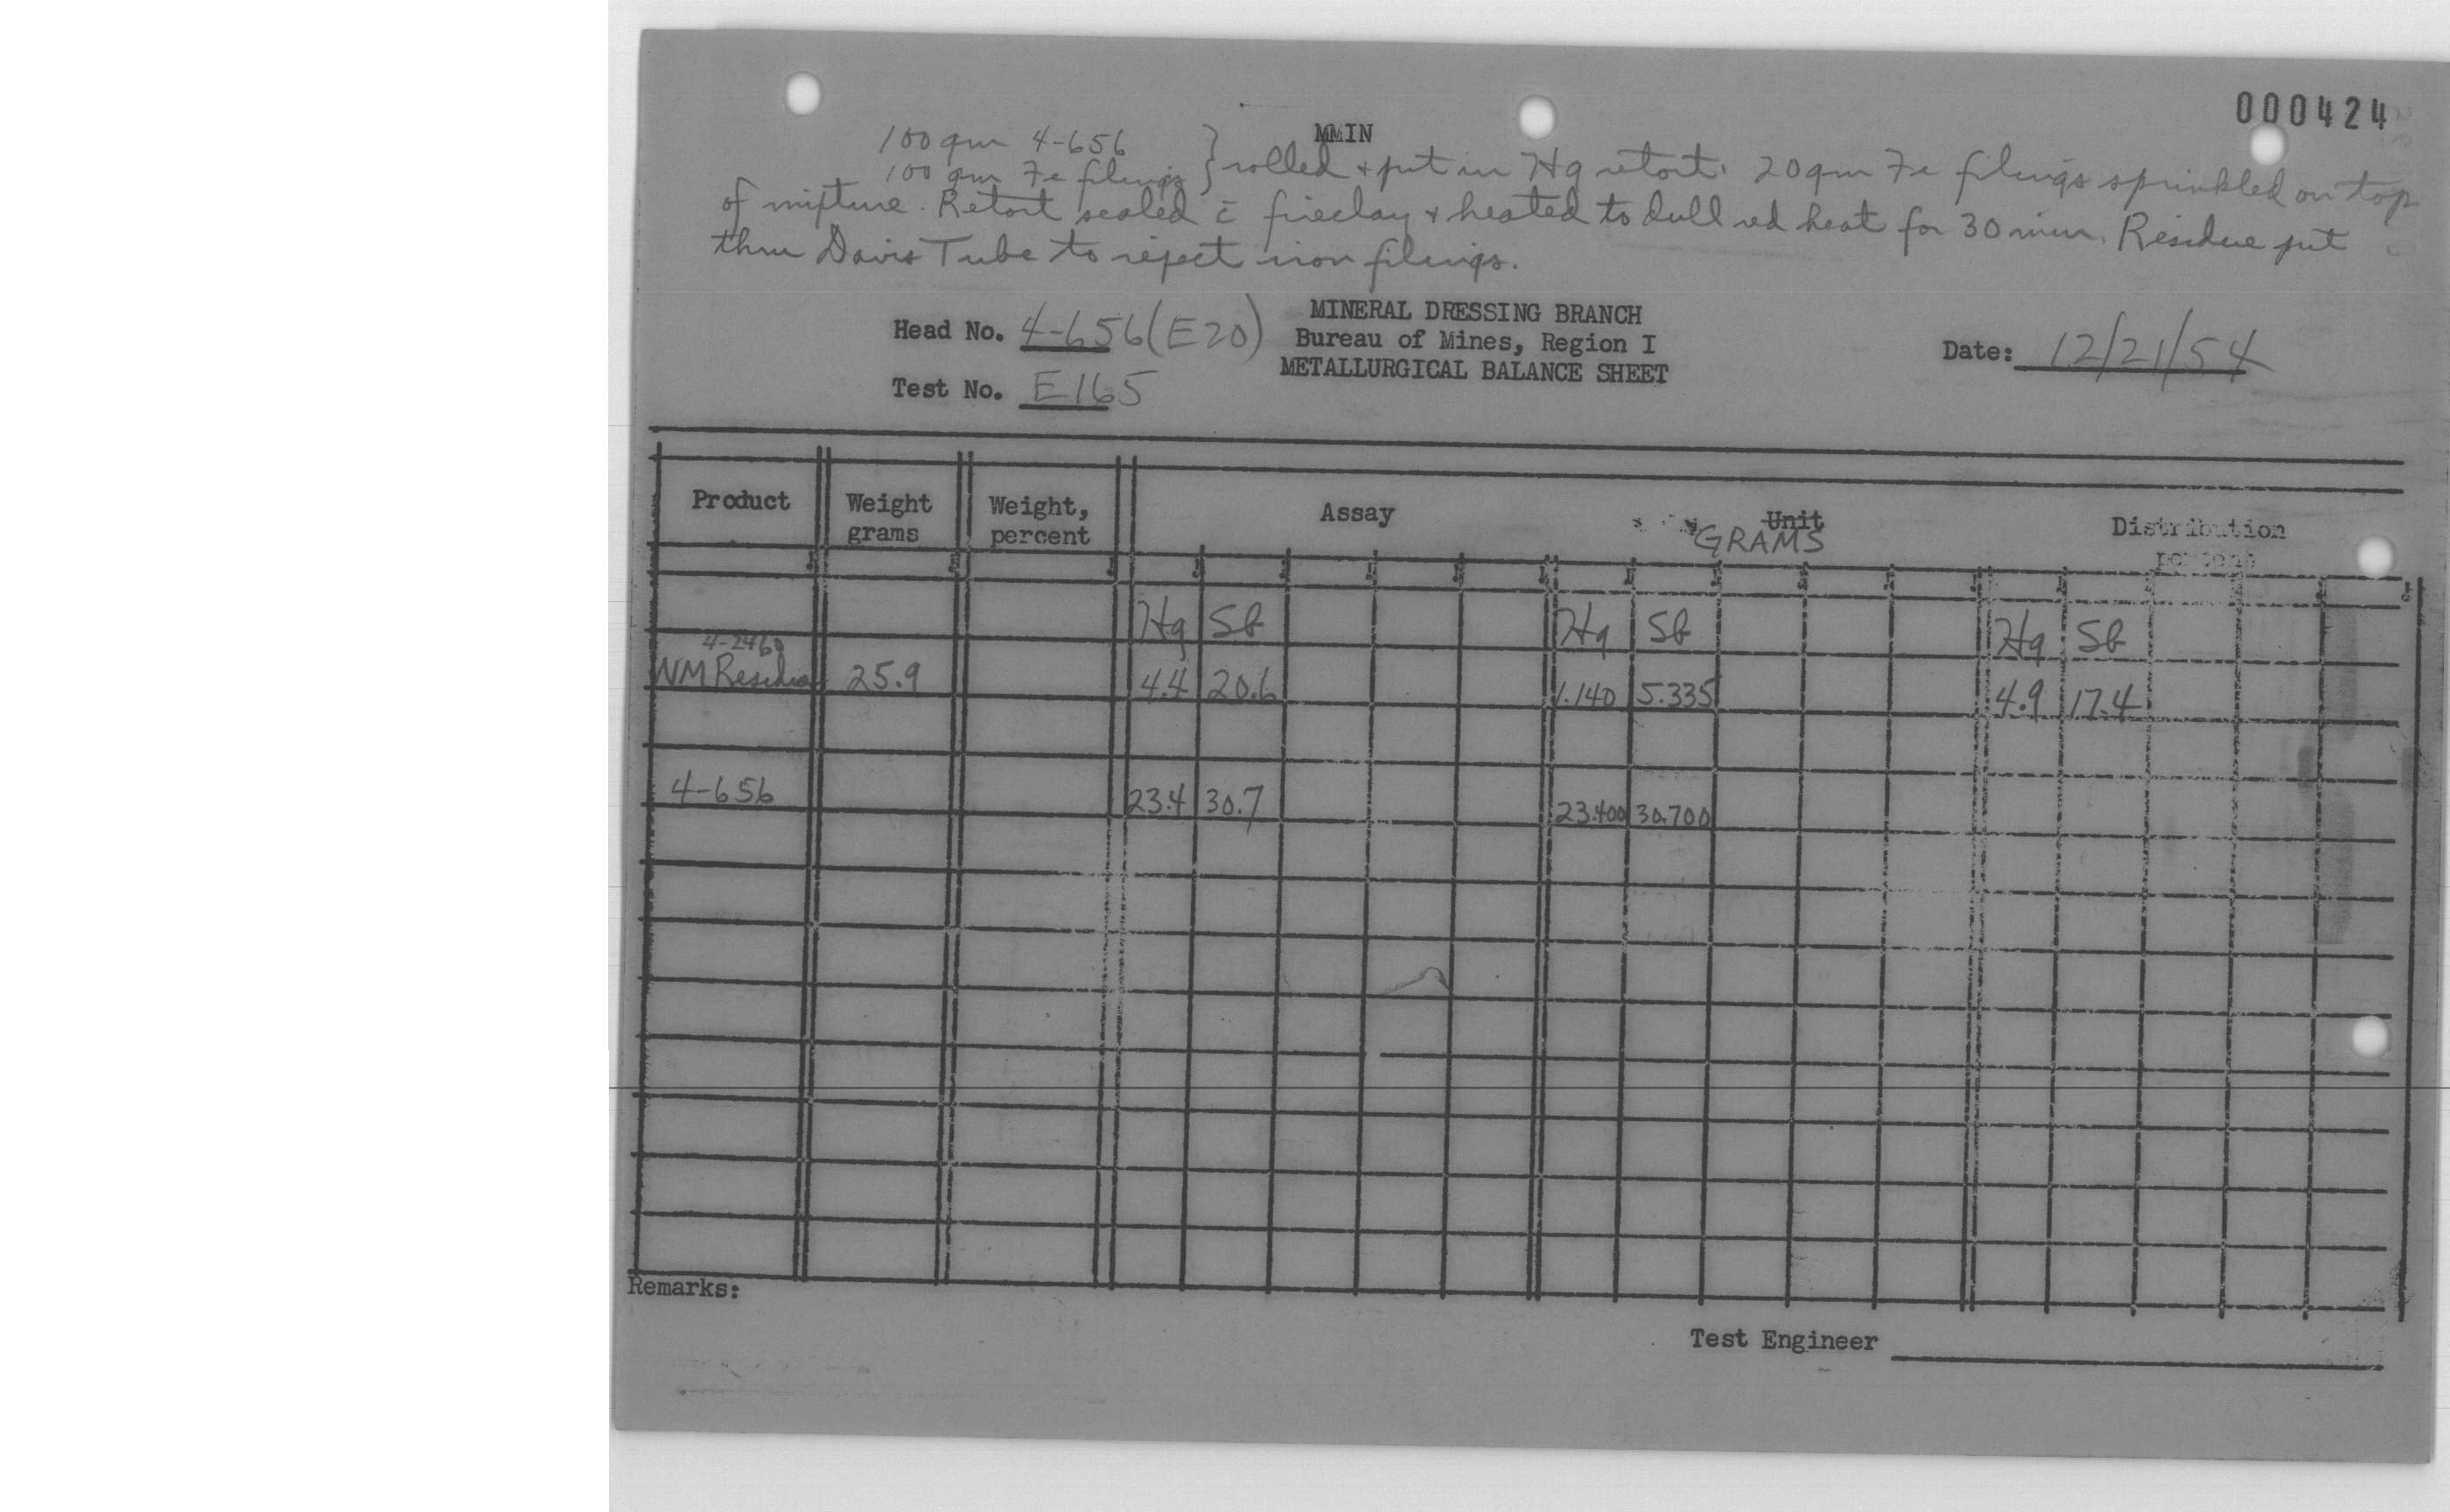 000424
MMIN
100 gm 4-656
100 gm Fe filings } rolled + put in Hg retort. 20 gm Fe filings sprinkled on top
of mixture. Retort sealed c̄ fireclay + heated to dull red heat for 30 min. Residue put
thru Davis Tube to reject iron filings.
MINERAL DRESSING BRANCH
Head No. 4-656 (E20) Bureau of Mines, Region I Date: 12/21/54
METALLURGICAL BALANCE SHEET
Test No. E165
Product Weight grams Weight, percent Assay Unit GRAMS Distribution percent
Hg Sb Hg Sb Hg Sb
4-2460
NM Residue 25.9 4.4 20.6 1.140 5.335 4.9 17.4
4-656 23.4 30.7 23.400 30.700
Remarks:
Test Engineer